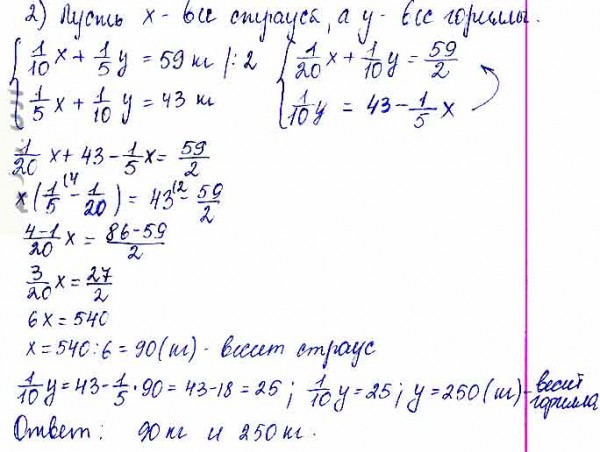 2) Пусть x - вес страуса, а y - вес гориллы.
{ 1/10 x + 1/5 y = 59 кг |:2 { 1/20 x + 1/10 y = 59/2
1/5 x + 1/10 y = 43 кг 1/10 y = 43 - 1/5 x
1/20 x + 43 - 1/5 x = 59/2
x (1/5 (4 - 1/20) = 43 (2 - 59/2
4-1/20 x = 86-59/2
3/20 x = 27/2
6x = 540
x = 540 : 6 = 90 (кг) - весит страус
1/10 y = 43 - 1/5 · 90 = 43 - 18 = 25 ; 1/10 y = 25 ; y = 250 (кг) - весит горилла
Ответ: 90 кг и 250 кг.